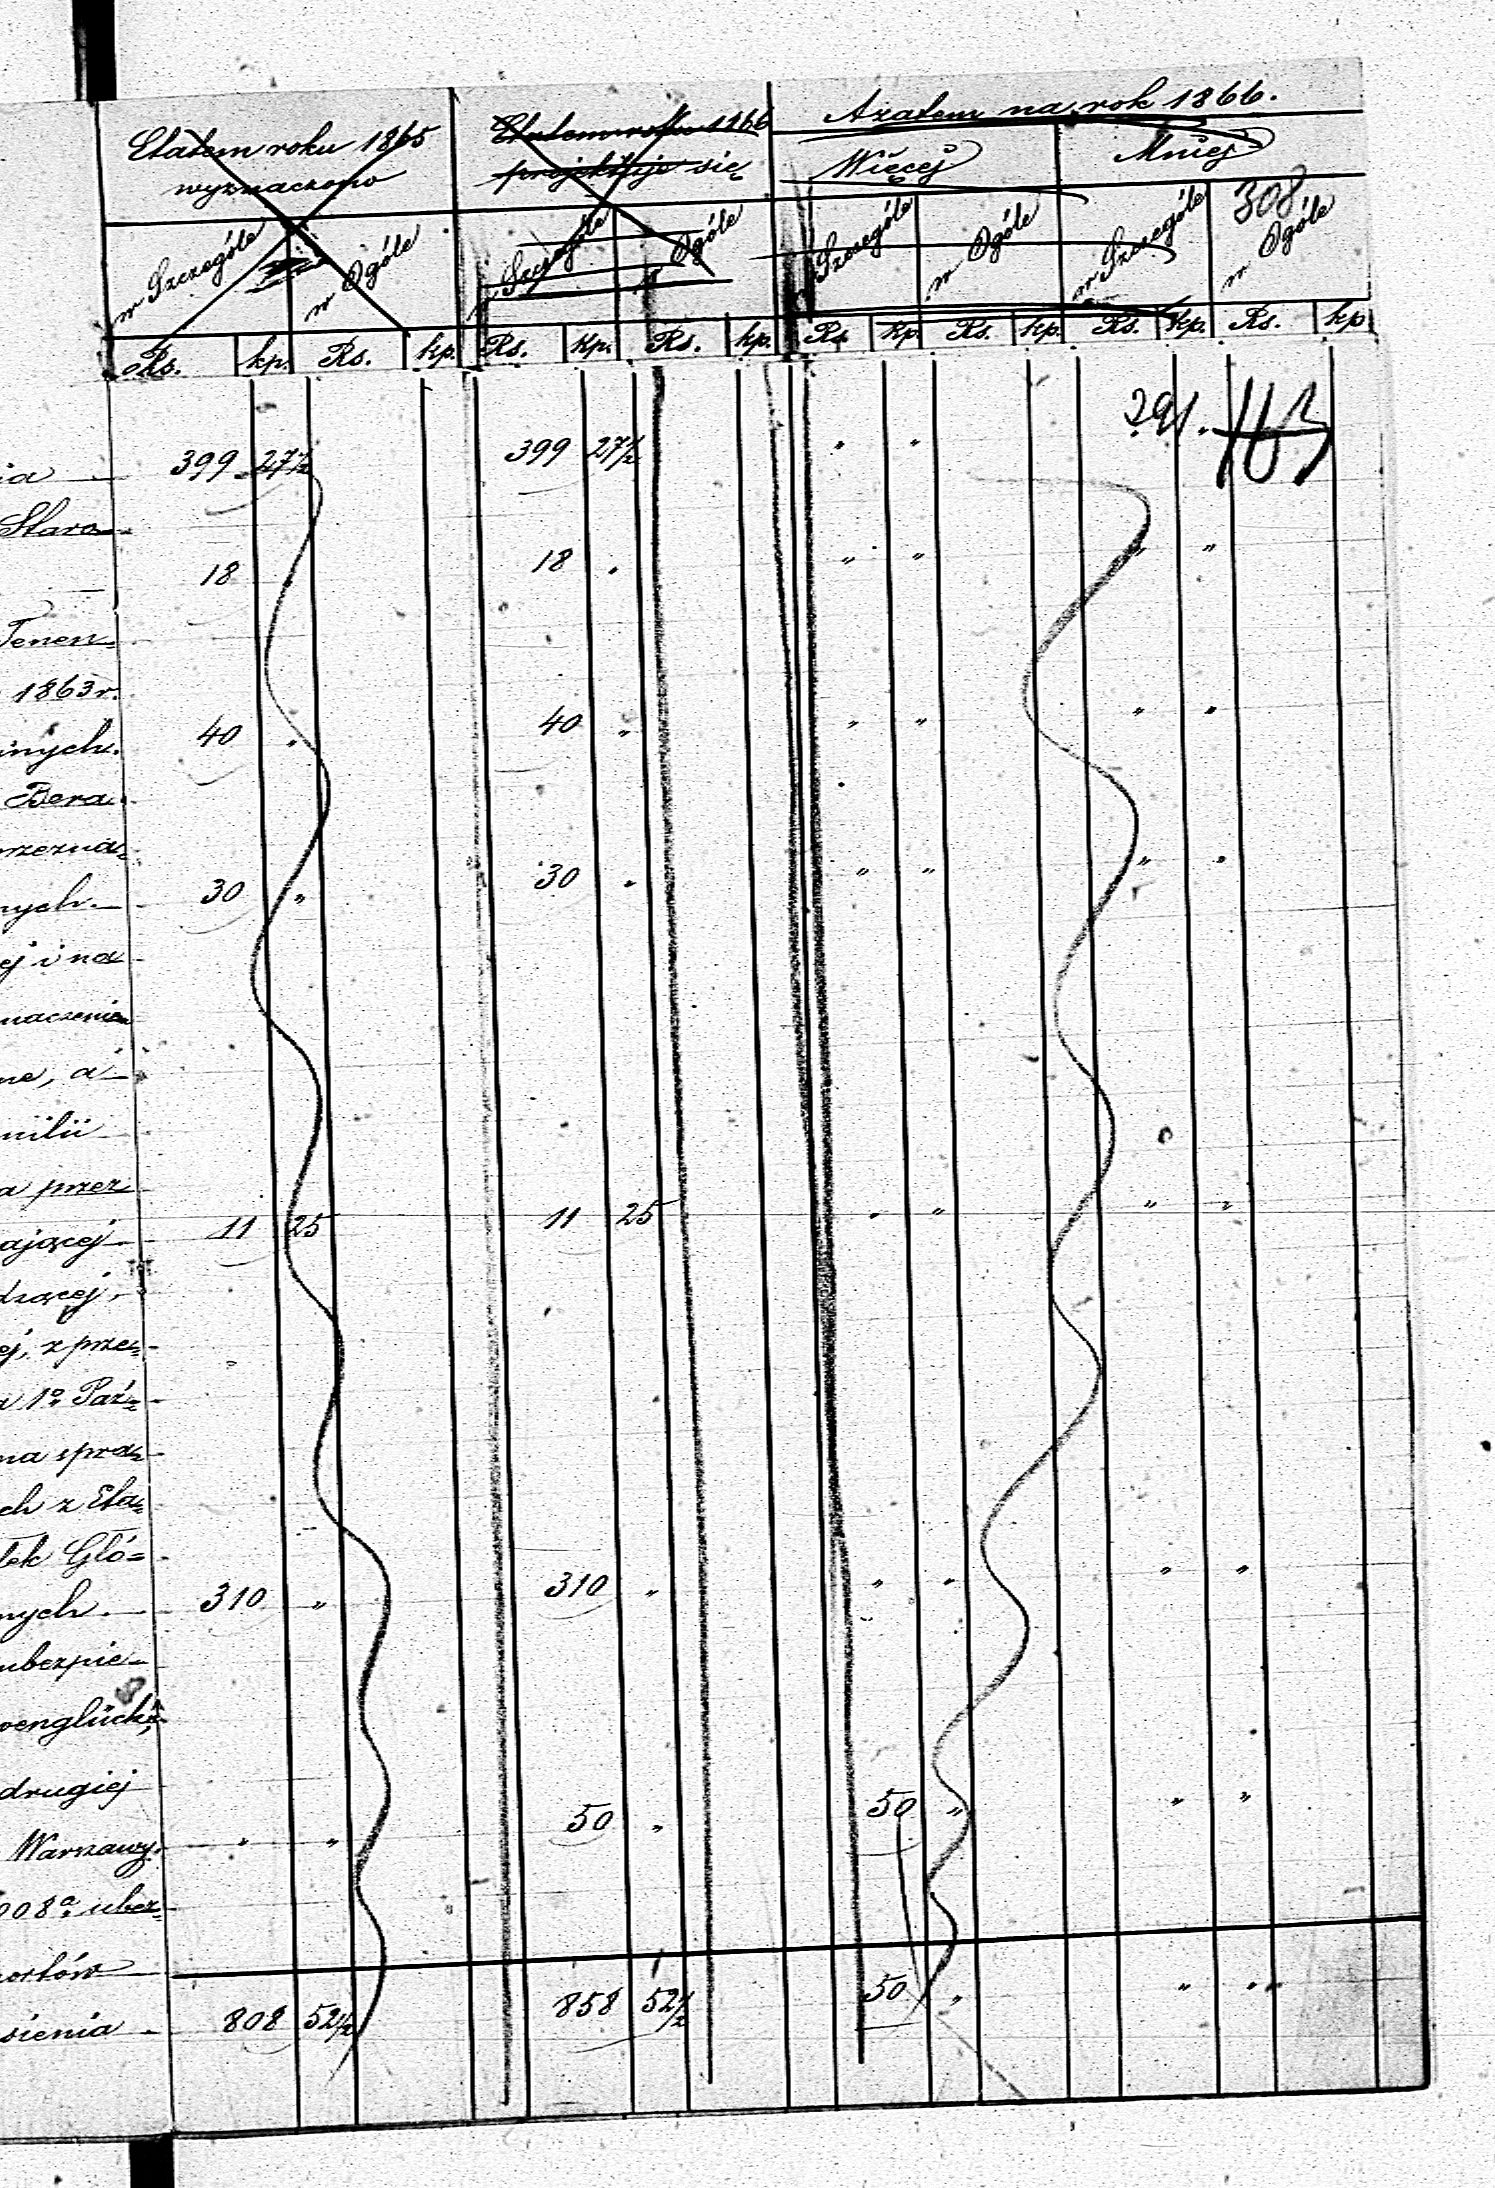 Etatem roku 1865 Etatem roku 1866 Azatem na rok 1866.
wyznaczono projektuje się Więcej Mniej
308
w Szczególe w Ogóle w Szczególe w Ogóle w Szczególe w Ogóle w Szczególe w Ogóle
Rs. kp. Rs. kp. Rs. kp. Rs. kp. Rs. kp. Rs. kp. Rs. kp. Rs. kp.
291. 163
ia 399 27½ 399 27½ " "
Staro-
18 " 18 " " " " "
Tenen-
1863 r.
innych. 40 " 40 " " " " "
Bera-
rzezna-
nych. 30 " 30 " " " " "
ej i na
naczenia
ne, a
milii
a przez
ającej 11 25 11 25 " " " "
dzącej,
ej, z prze-
a 1º Paź-
na spra-
ch z Eta-
tek Głó-
nych. 310 " 310 " " " " "
ubezpie-
wenglück,
drugiej
Warszawy. " " 50 " 50 " " "
008ª ubez-
ortów
sienia 808 52½ 858 52½ 50 " " "